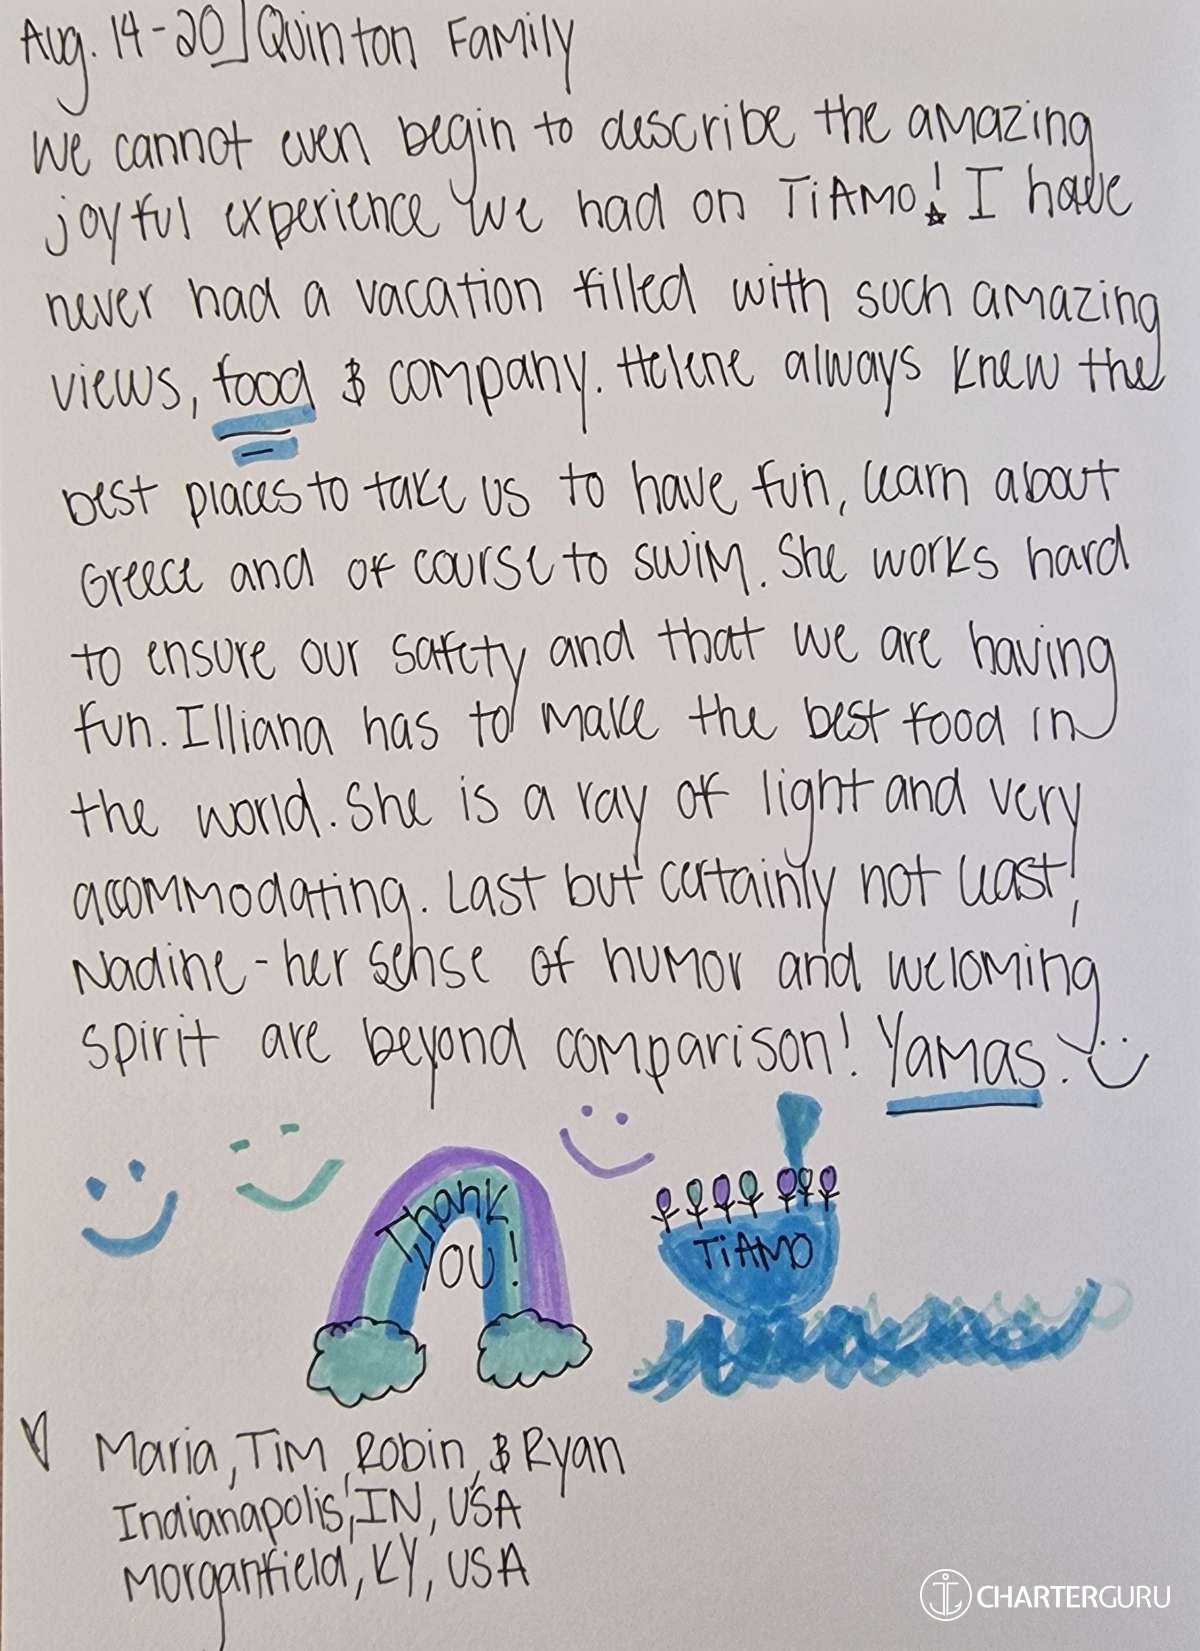 Aug. 14-20 | Quinton Family
We cannot even begin to describe the amazing
joyful experience we had on TiAMO! I have
never had a vacation filled with such amazing
views, food & company. Helene always knew the
best places to take us to have fun, learn about
Greece and of course to swim. She works hard
to ensure our safety and that we are having
fun. Illiana has to make the best food in
the world. She is a ray of light and very
accommodating. Last but certainly not least,
Nadine - her sense of humor and weloming
spirit are beyond comparison! Yamas!
Thank
YOU!
TiAMO
Maria, Tim, Robin, & Ryan
Indianapolis, IN, USA
Morganfield, KY, USA
CHARTERGURU